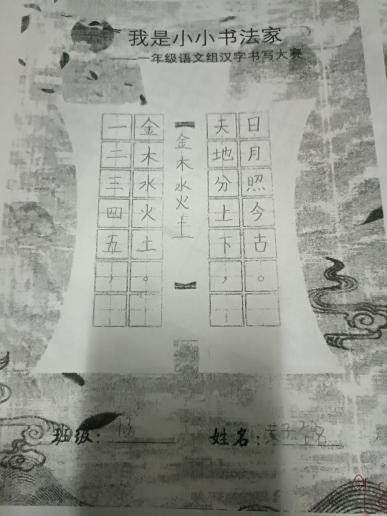 我是小小书法家
——一年级语文组汉字书写大赛
一二三四五，
金木水火土。
金木水火土
天地分上下，
日月照今古。
班级：
姓名：